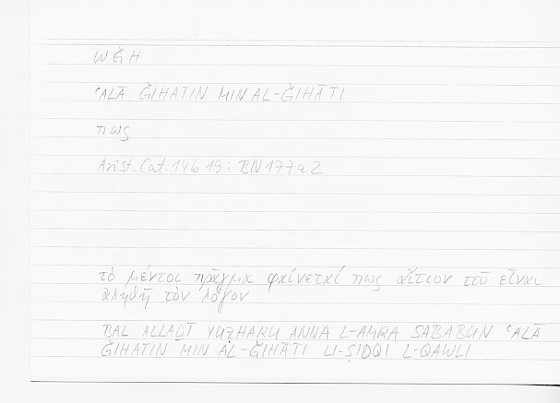 WǦH
ʿALĀ ǦIHATIN MIN AL-ǦIHĀTI
πως
Arist. Cat. 14b 19: BN 177a2
τὸ μέντοι πρᾶγμα φαίνεταί πως αἴτιον τοῦ εἶναι
ἀληθῆ τὸν λόγον
BAL ALLAḎĪ YUẒHARU ANNA L-AMRA SABABUN ʿALĀ
ǦIHATIN MIN AL-ǦIHĀTI LI-ṢIDQI L-QAWLI